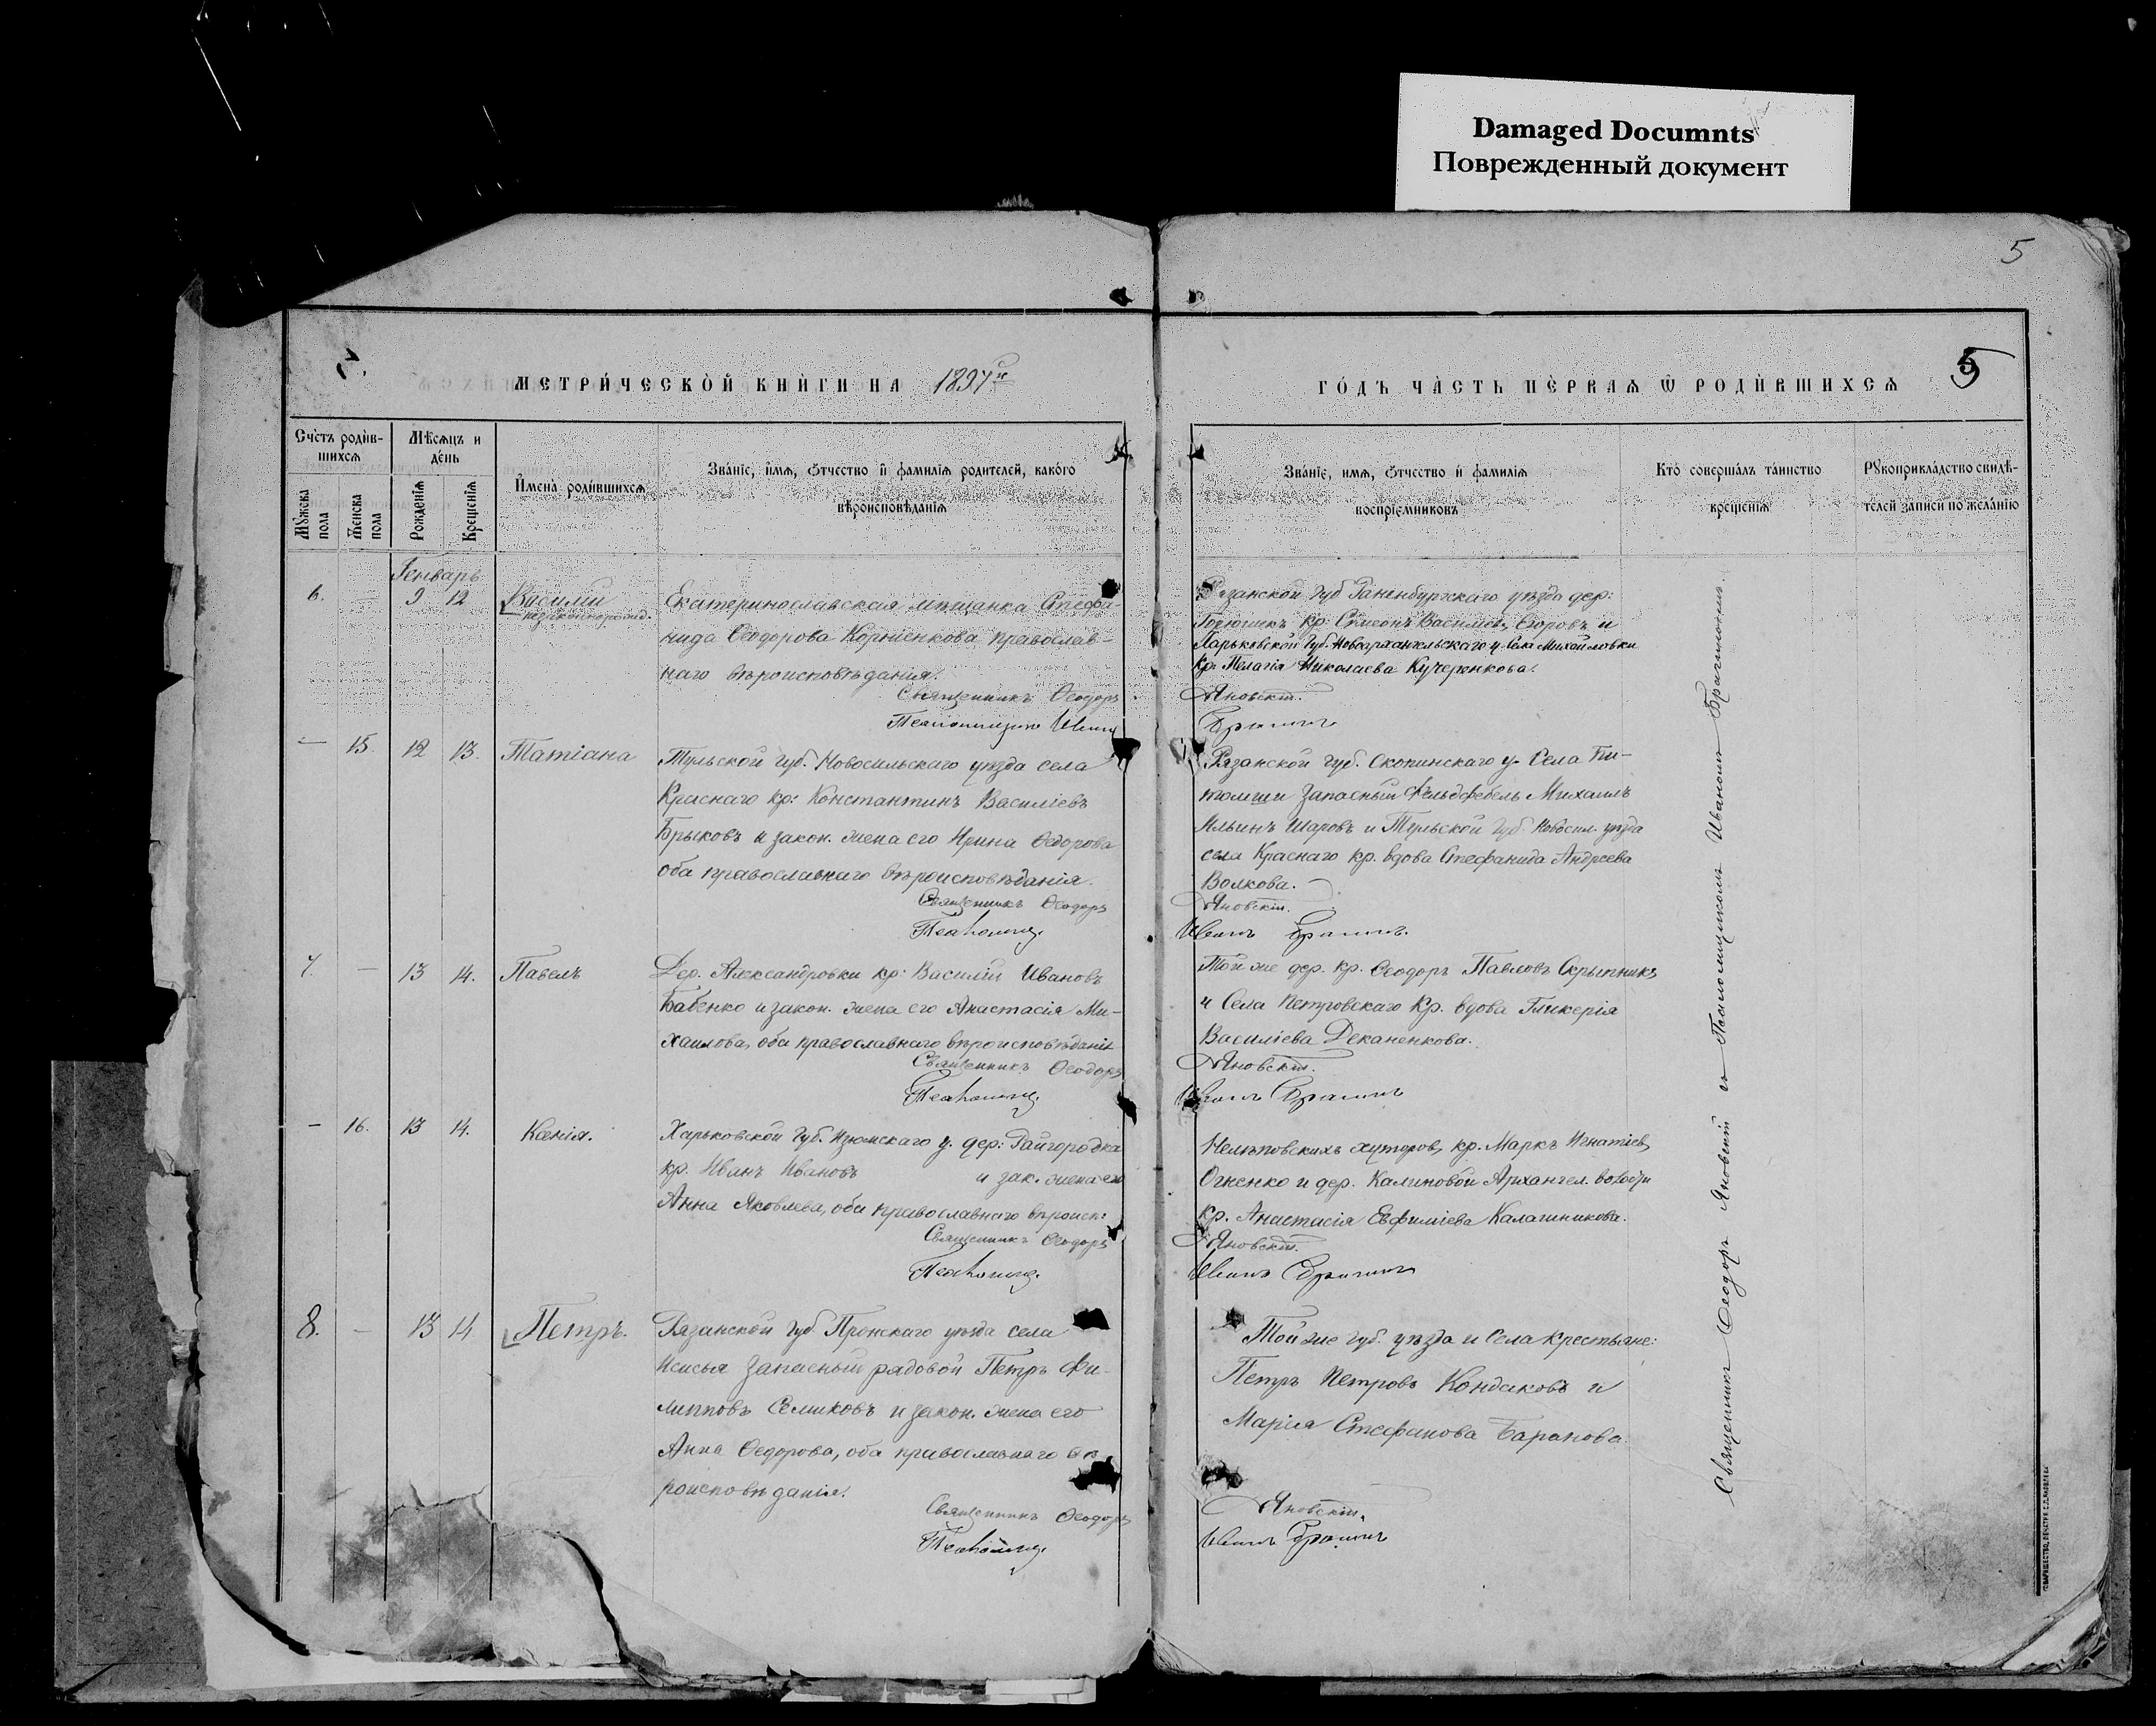 Damaged Documnts
Поврежденный документ
5
МЕТРИ́ЧЕСКОЙ КНИ́ГИ НА 1897 г.
ГО́ДЪ ЧА́СТЬ ПЕ́РВАѦ Ѡ РОДИ́ВШИХСѦ
5
Сче́тъ роди́в-
шихсѧ
Мѣ́сѧцъ и
де́нь
Мꙋ́жеска
пола
Же́нска
пола
Рожденїѧ
Крещенїѧ
И҆мена̀ роди́вшихсѧ
Зва́нїе, и҆́мѧ, ѻ҆́тчество и҆ фамилїѧ родителей, како́го
вѣроисповѣданїѧ
Зва́нїе, имѧ, ѻ҆́тчество и҆ фамилїѧ
воспрїемниковъ
Кто̀ совершалъ таинство
крещенїѧ
Рꙋкоприкла́дство свидѣ-
телей записи по жела́нїю
Генварь
6. — 9 12 Василій
незаконорожд.
Екатеринославская мѣщанка Стефа-
нида Ѳеодорова Корніенкова православ-
наго вѣроисповѣданія.
Священникъ Ѳеодоръ
Псаломщикъ Иванъ
Рязанской губ Раненбургскаго уѣзда дер:
кр: Симеонъ Василіевъ и
Харьковской Губ. у. Села Михайловки
кр. Пелагія Николаева Кучеренкова.
Яновскій.
— 15. 12 13. Татіана
Тульской губ. Новосильскаго уѣзда села
Краснаго кр: Константинъ Василіевъ
Брыковъ и закон. жена его Ирина Ѳедорова
оба православнаго вѣроисповѣданія.
Священникъ Ѳеодоръ
Псаломщ.
Рязанской губ. Скопинскаго у. Села
Запасный Фельдфебель Михаилъ
Ильинъ Шаровъ и Тульской Губ. Новосил. уѣзда
села Краснаго кр. вдова Стефанида Андреева
Волкова.
Яновскій.
Иванъ
7. — 13 14. Павелъ
Дер. Александровки кр: Василій Ивановъ
Бабенко и закон. жена его Анастасія Ми-
хаилова, оба православнаго вѣроисповѣданія
Священникъ Ѳеодоръ
Псаломщ.
Той же дер. кр. Ѳеодоръ Павловъ Скрыпникъ
и Села Петровскаго Кр. вдова Гликерія
Василіева Деканенкова.
Яновскій.
Иванъ
— 16. 13 14. Ксенія.
Харьковской Губ. Изюмскаго у. дер: Райгородка
кр. Иванъ Ивановъ и зак. жена его
Анна Яковлева, оба православнаго вѣроисп:
Священникъ Ѳеодоръ
Псаломщ.
хуторовъ, кр. Маркъ Игнатіевъ
и дер. Калиновой Архангел. волости
кр. Анастасія Евфиміева Калашникова.
Яновскій.
Иванъ
8. — 13 14 Петръ.
Рязанской губ. Пронскаго уѣзда села
Запасный рядовой Петръ Фи-
липповъ Селиковъ и закон. жена его
Анна Ѳедорова, оба православнаго вѣ-
роисповѣданія.
Священникъ Ѳеодоръ
Псаломщ.
Той же губ. уѣзда и Села крестьяне:
Петръ Петровъ Кондаковъ и
Марія Стефанова Баранова.
Яновскій.
Иванъ
Священникъ Ѳеодоръ Яновскій съ Псаломщикомъ Иваномъ